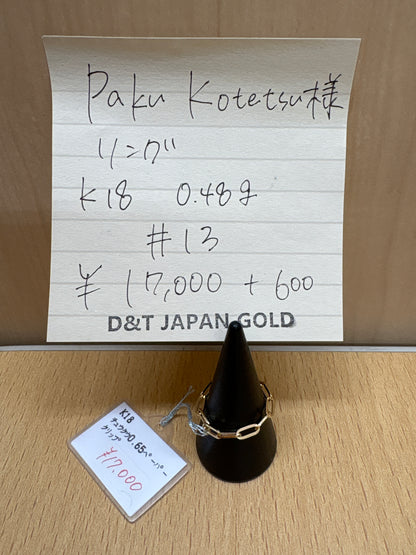 Paku Kotetsu様
リング
K18 0.48g
#13
¥ 17,000 + 600
D&T JAPAN GOLD
K18
チュウクウ0.65ペーパー
クリップ
¥17,000